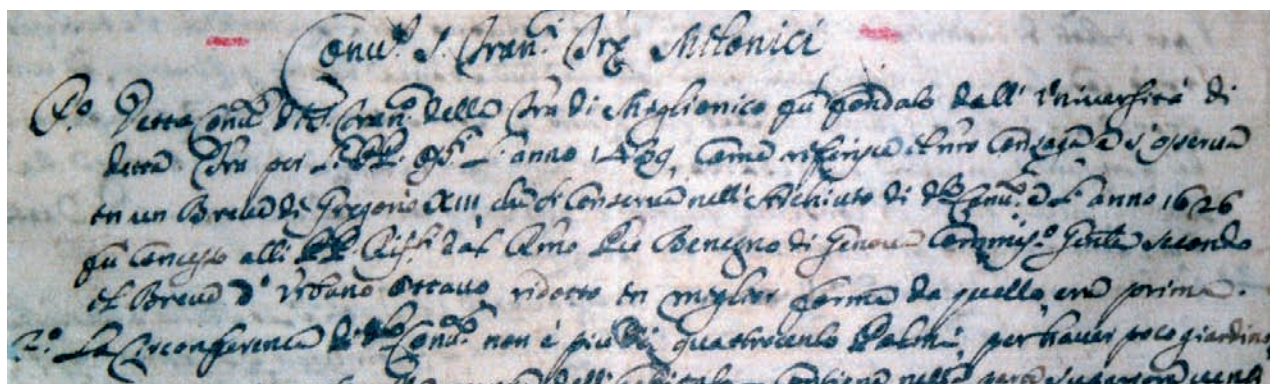 Conv.to S. Fran.co Trę Millonici
P.o Detto Conv.to di S. Fran.co della Trã di Meglionico fù fondato dall' Università di
detta Trã per li PP. l'anno 1489, come riferisce il nro Conzaga e s'osserva
in un Breve di Gregorio XIII che si conserva nell' Archivio di d.o Conv.to e l'anno 1626
fù concesso alli PP. Rif.ti dal Rmo Pře Benegno di Genova Commiss.o Gnle secondo
il Breve d' Urbano Ottavo ridotto in meglior forma da quello era prima.
2.o La Circonferenza di d.o Conv.to non è più di quattrocento Palmi, per haver poco giardino,